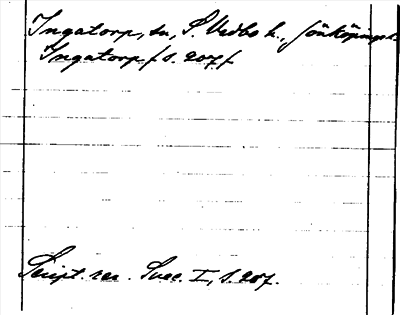 Ingatorp, sn, S. Vedbo h., Jönköpings l.
Ingatorp / s. 207 /
Script. rer. Suec. I, s. 207.